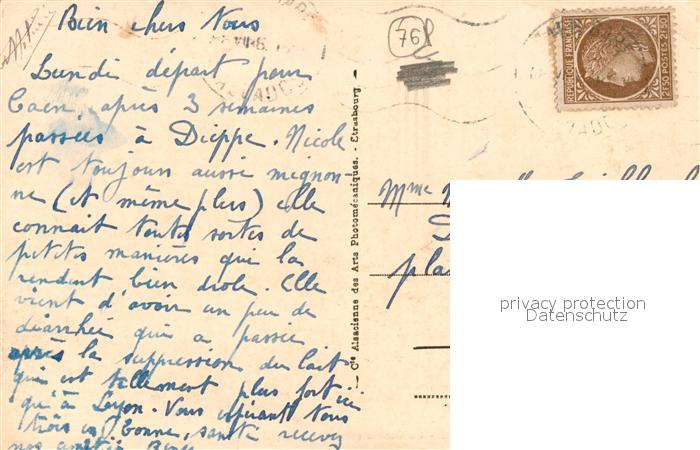 Bien chers Vous
Lundi départ pour
Caen après 3 semaines
passées à Dieppe. Nicole
est toujours aussi mignon-
ne (et même plus) elle
connait toutes sortes de
petites manières qui la
rendent bien drole. Elle
vient d'avoir un peu de
diarrhée qui a passée
après la suppression du lait
qui est tellement plus fort ici
qu'à Lyon. Vous espérant tous
trois en bonne santé recevez
nos
76
REPUBLIQUE FRANÇAISE
2F50 POSTES 2F50
Cie Alsacienne des Arts Photomécaniques. - Strasbourg.
Mme
pla
privacy protection
Datenschutz